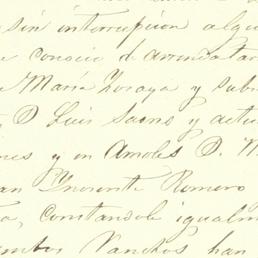 sin interrupcion algu
e conoció de arrendatar
e María Zoraya y subr
D Luis Saens y actu
nes y en Amoles D. N
an Ynocente Romero
a, constandole igualm
ambos Ranchos han